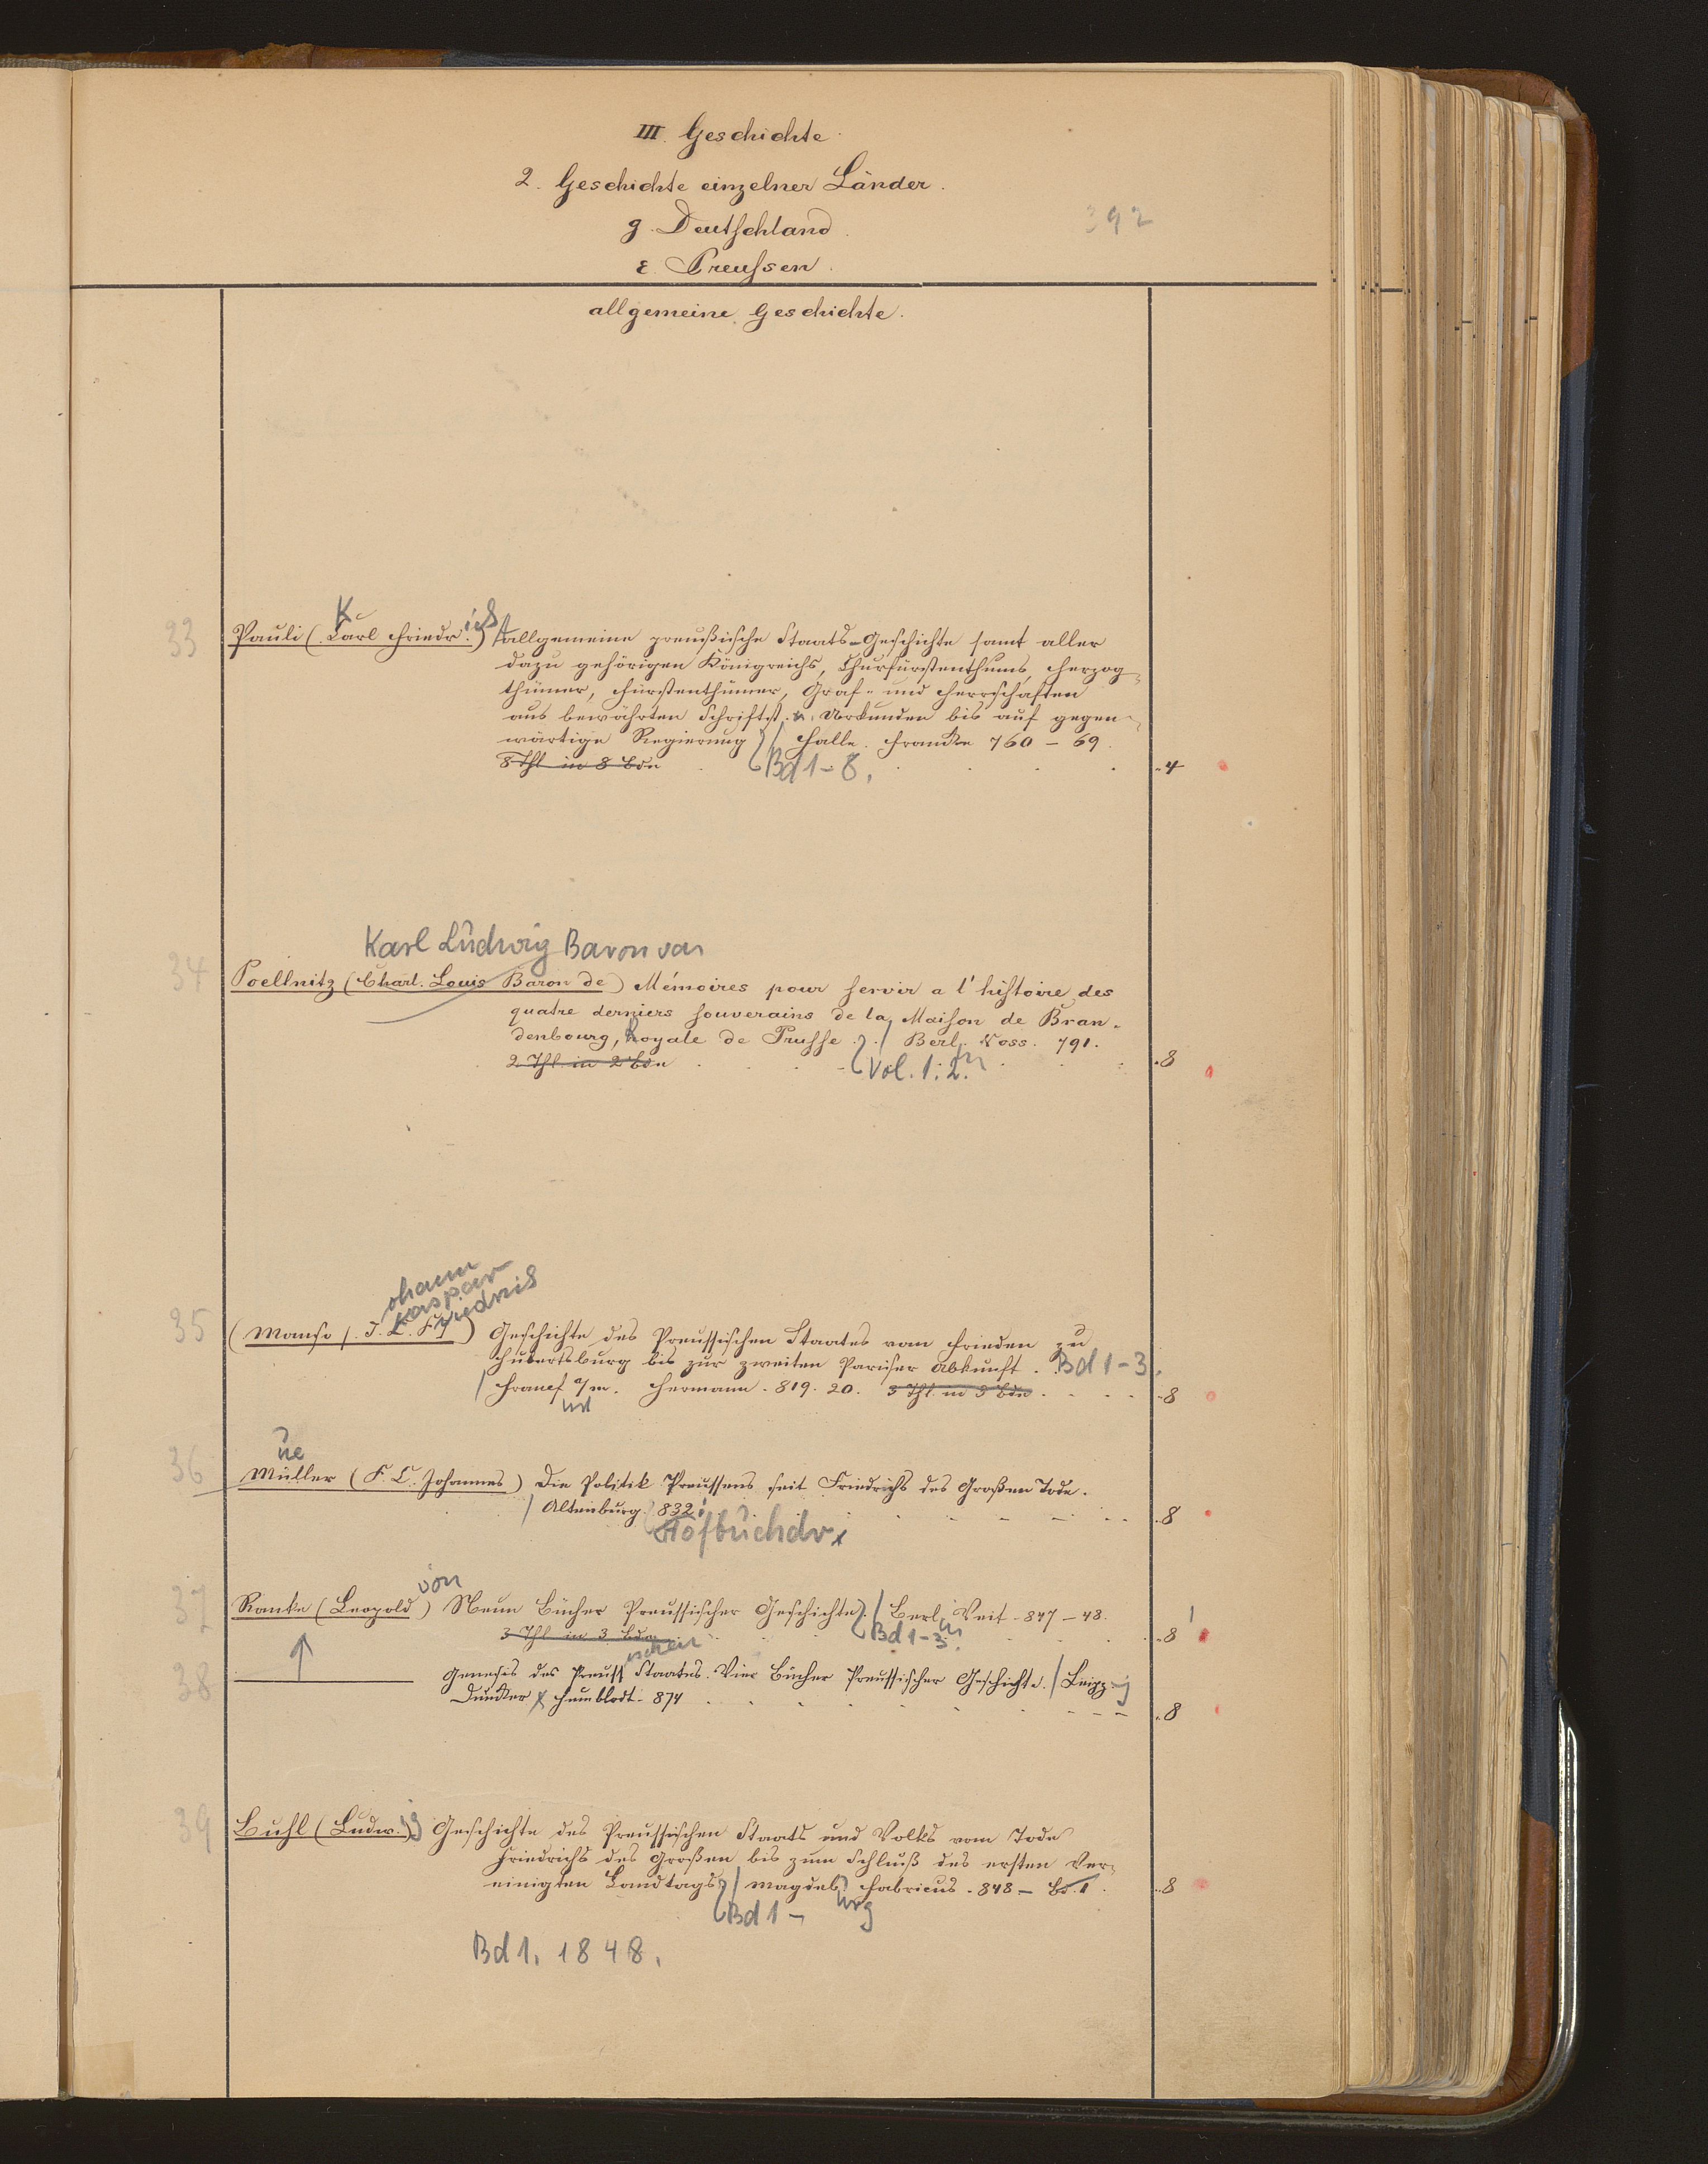 III. Geschichte
2. Geschichte einzelner Länder.
g. Deutschland.
392
ε. Preussen.
allgemeine Geschichte.
K
ich
33 Pauli (Carl Friedr.) allgemeine preußische Staats-Geschichte samt aller
dazu gehörigen Königreichs, Churfürstenthums, Herzog-
thümer, Fürstenthümer, Graf- und Herrschaften
aus bewährten Schriftst. u. Urkunden bis auf gegen-
wärtige Regierung / Halle. Francke 760 – 69.
8 Thl in 8 Bdn Bd 1-8. 4
Karl Ludwig Baron von
34 Poellnitz (Charl. Louis Baron de) Mémoires pour servir a l'histoire des
quatre derniers souverains de la Maison de Bran-
denbourg, Royale de Prusse. / Berl. Voss. 791.
2 Thl. in 2 Bdn Vol. 1. 2. in 8
ohann
Kaspar
riedrich
35 (Manso (J. C. F.) Geschichte des Preussischen Staates vom Frieden zu
Hubertsburg bis zur zweiten Pariser Abkunft. Bd 1-3.
/ Francf a/m. Hermann. 819. 20. 3 Thl in 3 Bdn 8
urt
ue
36 Müller (F. C. Johannes) Die Politik Preussens seit Friedrichs des Großen Tode.
/ Altenburg. 832. 8
Hofbuchdr.
von
37 Ranke (Leopold) Neun Bücher Preussischer Geschichte. / Berl. Veit. 847 – 48.
3 Thl in 3 Bdn Bd 1-3. in 8
ischen
38 ——— Genesis des Preuss Staates. Vier Bücher Preussischer Geschichte. / Leipz. g
Duncker & Humblodt. 874 8
39 Buhl (Ludw. ig) Geschichte des Preussischen Staats und Volks vom Tode
Friedrichs des Großen bis zum Schluß des ersten Ver-
einigten Landtags / Magdeb. Fabricius. 848 – Bd. 1. 8
Bd 1 – urg
Bd 1. 1848.